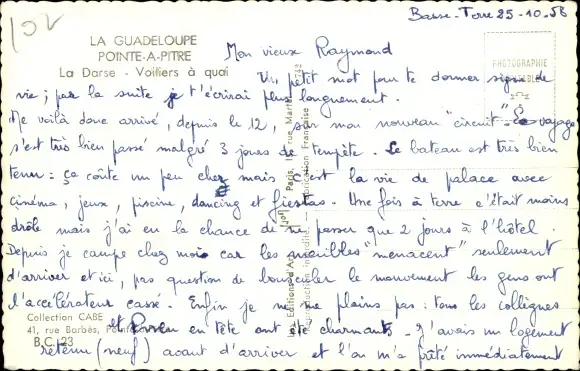 Basse-Terre 25-10.58
LA GUADELOUPE
POINTE-A-PITRE
La Darse - Voiliers à quai
PHOTOGRAPHIE
Mon vieux Raymond
Un petit mot pour te donner signe de
vie ; par la suite je t'écrirai plus longuement.
Me voilà donc arrivé, depuis le 12, sur mon nouveau "circuit". Le voyage
s'est très bien passé malgré 3 jours de tempête. Le bateau est très bien
tenu : ça coûte un peu cher mais c'est la vie de palace avec
cinéma, jeux, piscine, dancing et fiestas. Une fois à terre c'était moins
drôle mais j'ai eu la chance de ne passer que 2 jours à l'hôtel.
Depuis je campe chez moi car les meubles "menacent" seulement
d'arriver et ici, pas question de bousculer le mouvement les gens ont
l'accélérateur cassé. Enfin je ne me plains pas : tous les collègues
et en tête ont été charmants - J'avais un logement
retenu (neuf) avant d'arriver et l'on m'a prêté immédiatement
Collection CABE
41, rue Barbès,
B.C. 23